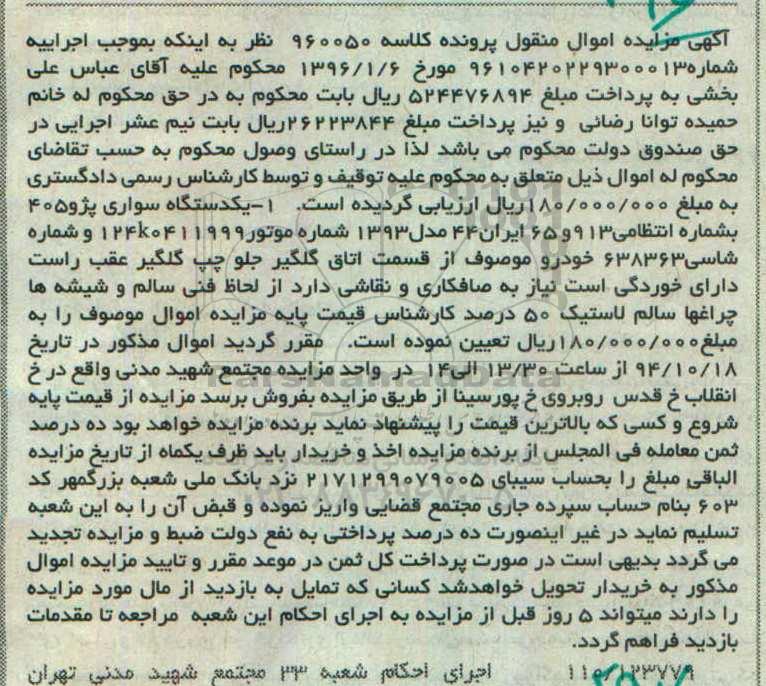 آگهی مزایده اموال منقول پرونده کلاسه ۹۶۰۰۵۰ نظر به اینکه بموجب اجراییه
شماره۹۶۱۰۴۲۰۲۲۹۳۰۰۰۱۳ مورخ ۱۳۹۶/۱/۶ محکوم علیه آقای عباس علی
بخشی به پرداخت مبلغ ۵۲۴۴۷۶۸۹۴ ریال بابت محکوم به در حق محکوم له خانم
حمیده توانا رضائی و نیز پرداخت مبلغ ۲۶۲۲۳۸۴۴ریال بابت نیم عشر اجرایی در
حق صندوق دولت محکوم می باشد لذا در راستای وصول محکوم به حسب تقاضای
محکوم له اموال ذیل متعلق به محکوم علیه توقیف و توسط کارشناس رسمی دادگستری
به مبلغ ۱۸۰/۰۰۰/۰۰۰ریال ارزیابی گردیده است. ۱-یکدستگاه سواری پژو۴۰۵
بشماره انتظامی۹۱۳و۶۵ ایران۴۴ مدل۱۳۹۳ شماره موتور۱۲۴k۰۴۱۱۹۹۹ و شماره
شاسی۶۳۸۳۶۳ خودرو موصوف از قسمت اتاق گلگیر جلو چپ گلگیر عقب راست
دارای خوردگی است نیاز به صافکاری و نقاشی دارد از لحاظ فنی سالم و شیشه ها
چراغها سالم لاستیک ۵۰ درصد کارشناس قیمت پایه مزایده اموال موصوف را به
مبلغ۱۸۰/۰۰۰/۰۰۰ریال تعیین نموده است. مقرر گردید اموال مذکور در تاریخ
۹۴/۱۰/۱۸ از ساعت ۱۳/۳۰ الی۱۴ در واحد مزایده مجتمع شهید مدنی واقع در خ
انقلاب خ قدس روبروی خ پورسینا از طریق مزایده بفروش برسد مزایده از قیمت پایه
شروع و کسی که بالاترین قیمت را پیشنهاد نماید برنده مزایده خواهد بود ده درصد
ثمن معامله فی المجلس از برنده مزایده اخذ و خریدار باید ظرف یکماه از تاریخ مزایده
الباقی مبلغ را بحساب سیبای ۲۱۷۱۲۹۹۰۷۹۰۰۵ نزد بانک ملی شعبه بزرگمهر کد
۶۰۳ بنام حساب سپرده جاری مجتمع قضایی واریز نموده و قبض آن را به این شعبه
تسلیم نماید در غیر اینصورت ده درصد پرداختی به نفع دولت ضبط و مزایده تجدید
می گردد بدیهی است در صورت پرداخت کل ثمن در موعد مقرر و تایید مزایده اموال
مذکور به خریدار تحویل خواهدشد کسانی که تمایل به بازدید از مال مورد مزایده
را دارند میتواند ۵ روز قبل از مزایده به اجرای احکام این شعبه مراجعه تا مقدمات
بازدید فراهم گردد.
۱۱۰/۱۲۳۷۷۹ اجرای احکام شعبه ۳۳ مجتمع شهید مدنی تهران
ParsNamadData